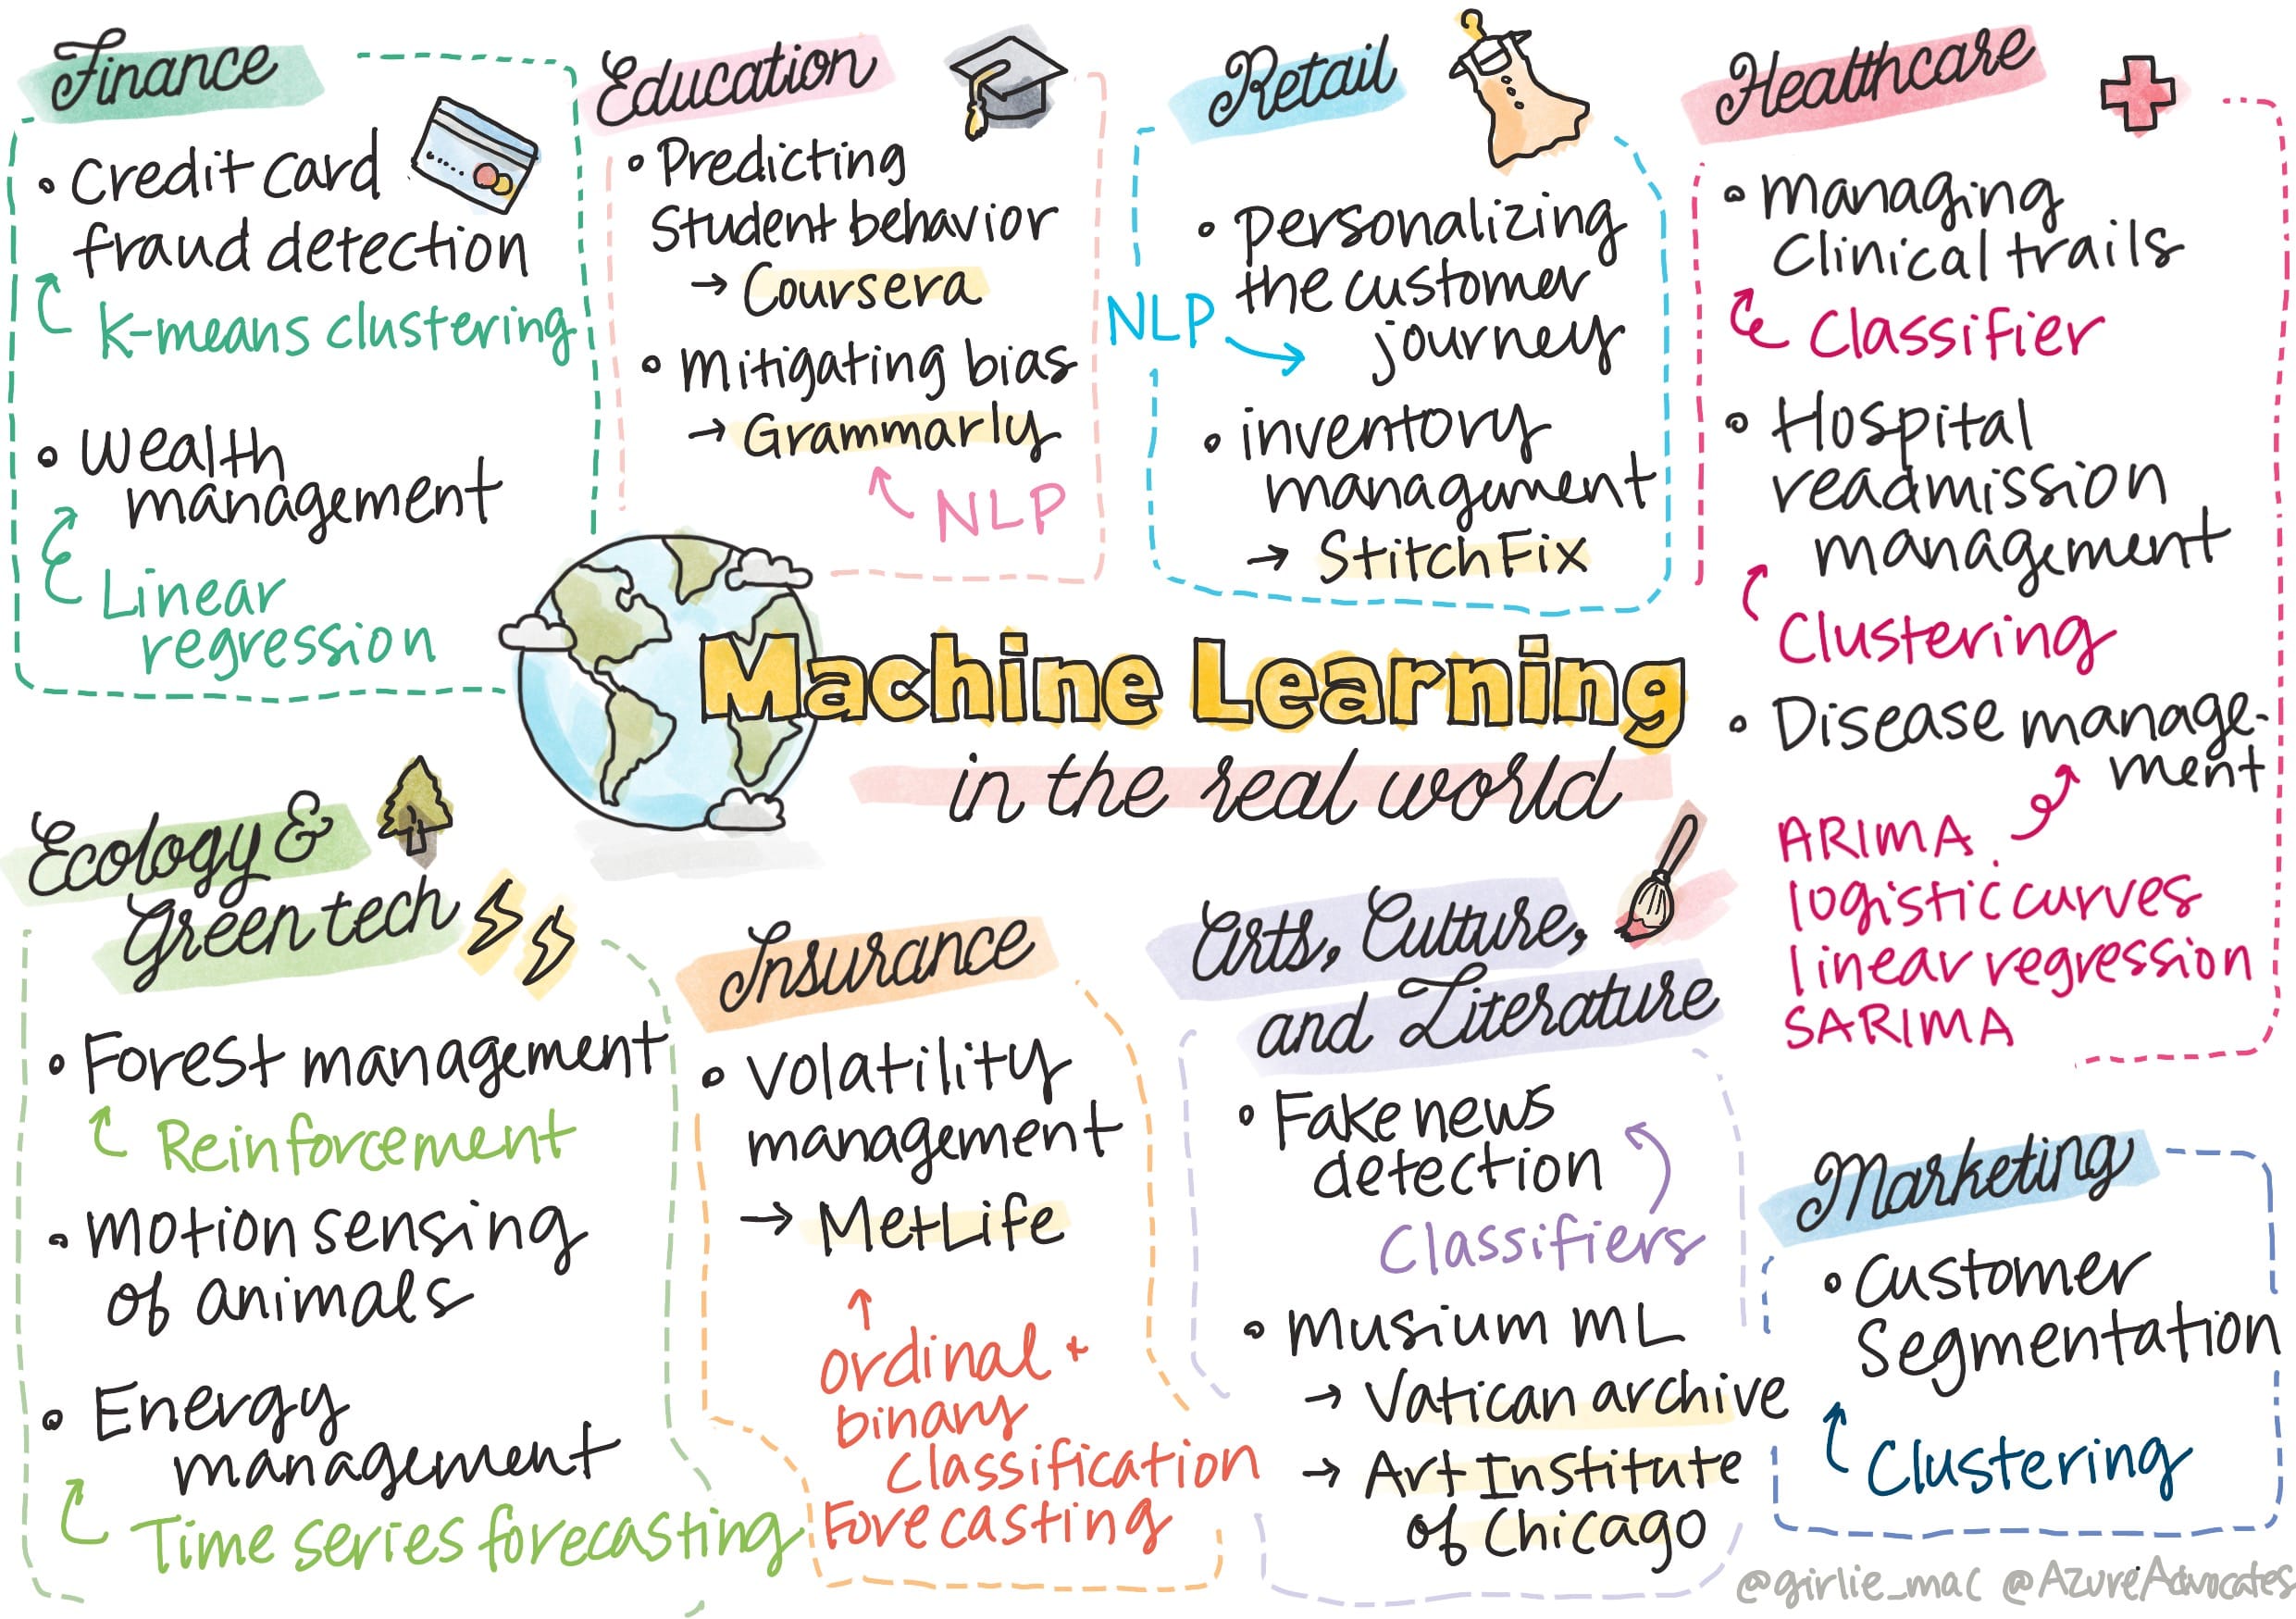 Finance
• Credit card
fraud detection
K-means clustering
• Wealth
management
Linear
regression
Education
• Predicting
Student behavior
→ Coursera
• Mitigating bias
→ Grammarly
NLP
Retail
• personalizing
the customer
journey
NLP
• inventory
managument
→ StitchFix
Healthcare
• managing
Clinical trails
Classifier
• Hospital
readmission
management
Clustering
• Disease manage-
ment
ARIMA
logistic curves
linear regression
SARIMA
Machine Learning
in the real world
Ecology &
Green tech
• Forest management
Reinforcement
• Motion sensing
of animals
• Energy
management
Time series forecasting
Insurance
• Volatility
management
→ MetLife
ordinal +
binary
Classification
Forecasting
Arts, Culture,
and Literature
• Fake news
detection
Classifiers
• Musium ML
→ Vatican archive
→ Art Institute
of Chicago
Marketing
• Customer
Segmentation
Clustering
@girlie_mac @AzureAdvocates